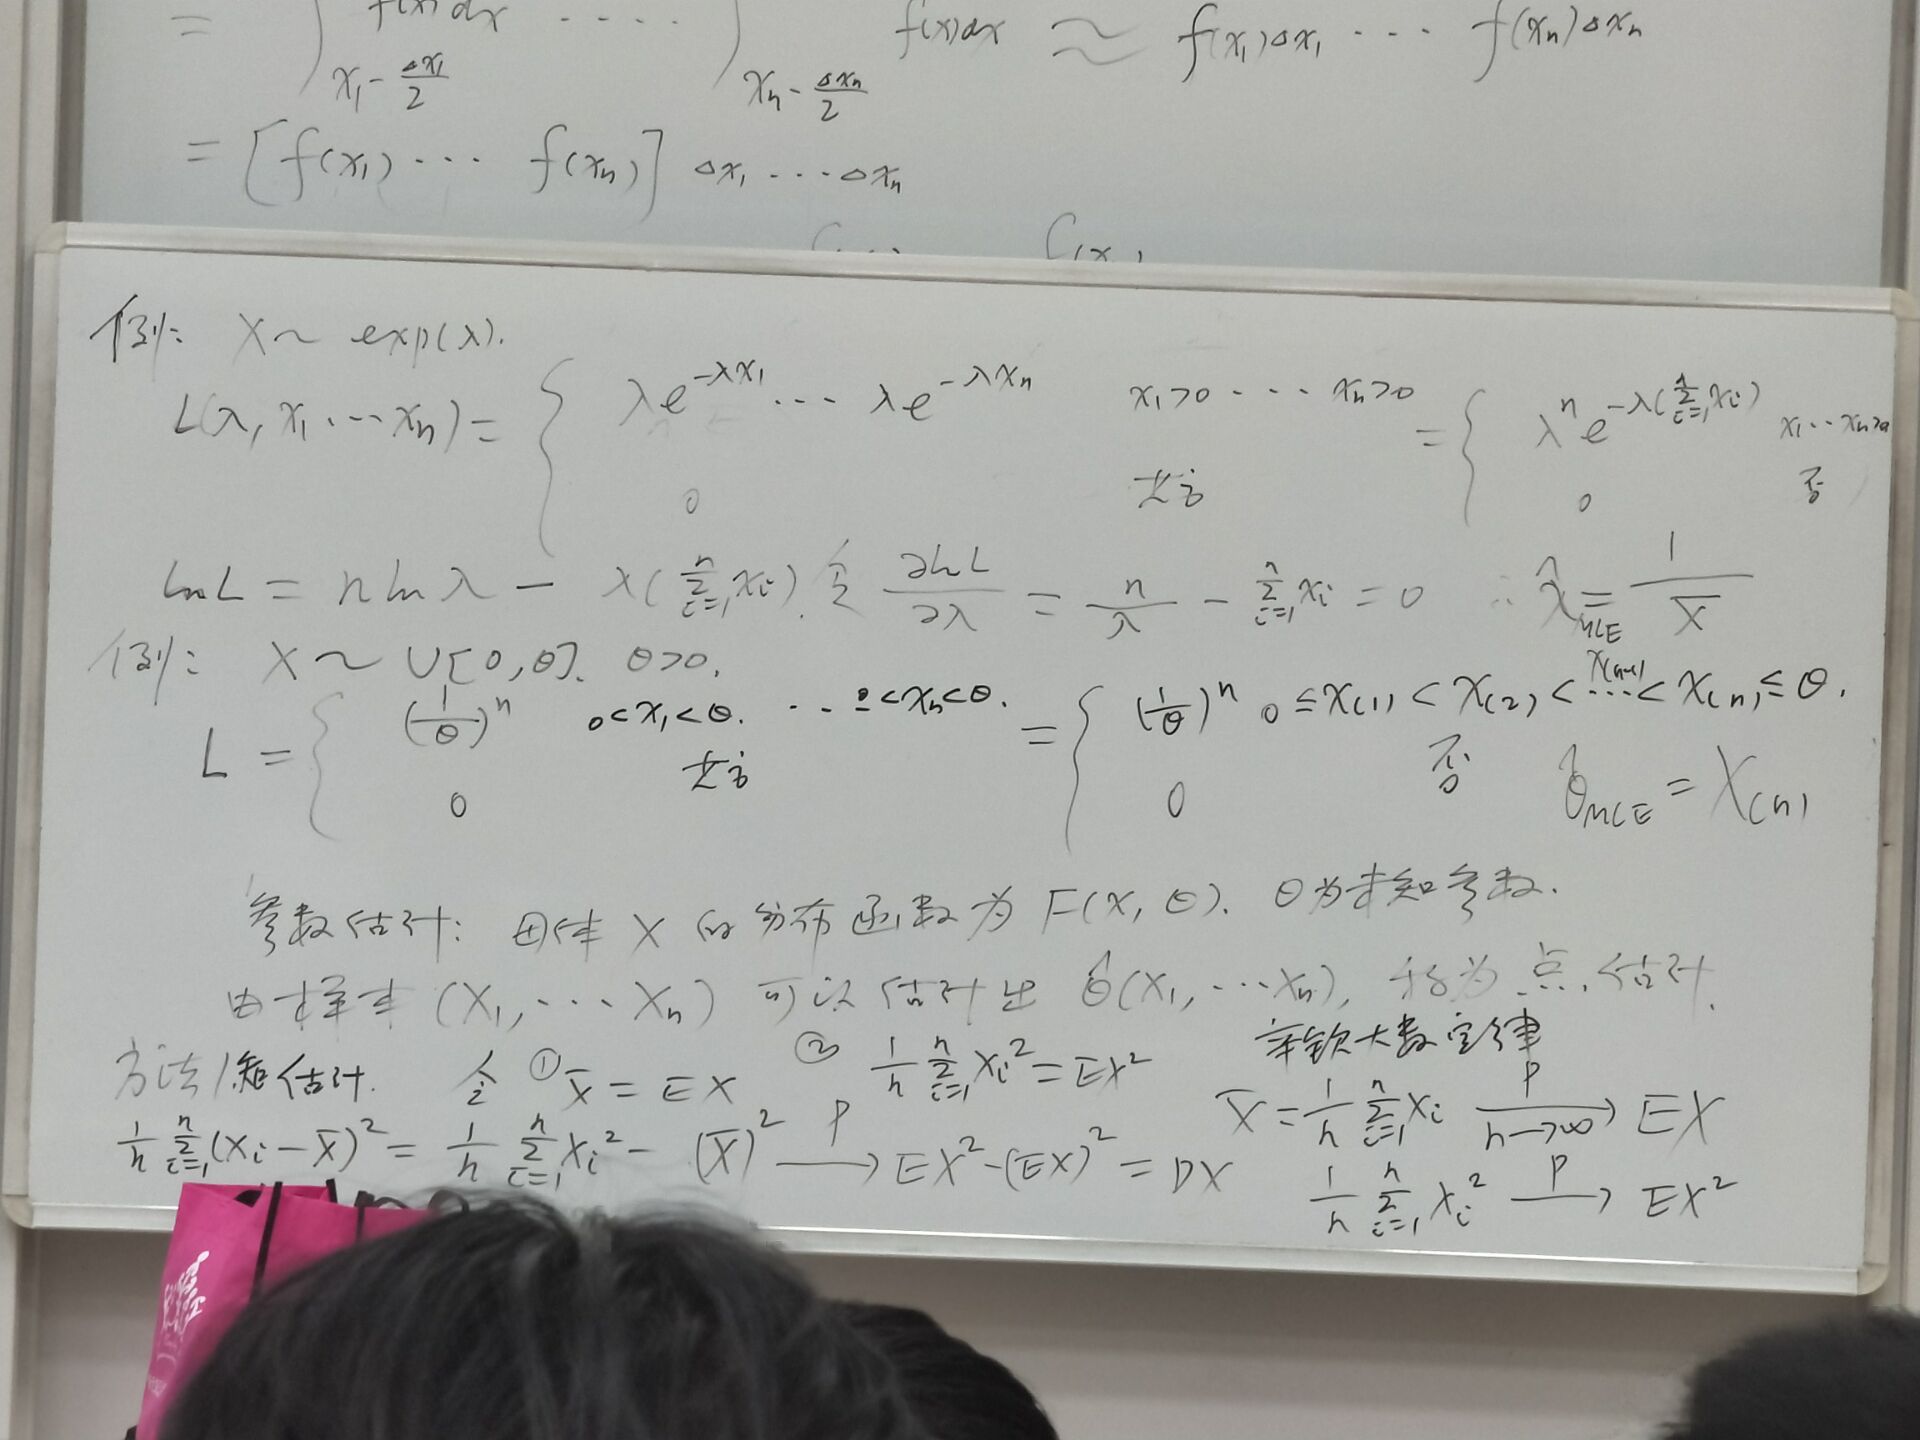 = ∫_{x₁ - Δx₁/2} f(x)dx ···· ∫_{xₙ - Δxₙ/2} f(x)dx ≈ f(x₁)Δx₁ ··· f(xₙ)Δxₙ
= [f(x₁) ··· f(xₙ)] Δx₁ ··· Δxₙ
例: X ~ exp(λ).
L(λ, x₁ ··· xₙ) = { λe^{-λx₁} ··· λe^{-λxₙ} x₁>0 ··· xₙ>0 ; 0 其它 = { λⁿ e^{-λ(Σ_{i=1}^{n} xᵢ)} x₁ ··· xₙ>0 ; 0 否
lnL = n ln λ - λ(Σ_{i=1}^{n} xᵢ). 令 ∂lnL/∂λ = n/λ - Σ_{i=1}^{n} xᵢ = 0 ∴ λ̂_{MLE} = 1/X̄
例: X ~ U[0,θ]. θ>0.
L = { (1/θ)ⁿ 0<x₁<θ. ··· 0<xₙ<θ. ; 0 其它 = { (1/θ)ⁿ 0≤x₍₁₎<x₍₂₎<···x₍ₙ₋₁₎<x₍ₙ₎≤θ. ; 0 否 θ̂_{MLE} = X₍ₙ₎
参数估计: 母体 X 的分布函数为 F(x, θ). θ为未知参数.
由样本 (X₁, ··· Xₙ) 可以估计出 θ̂(X₁, ··· Xₙ), 称为点估计.
方法1矩估计. 令 ① X̄ = EX ② 1/n Σ_{i=1}^{n} Xᵢ² = EX² 辛钦大数定律
X̄ = 1/n Σ_{i=1}^{n} Xᵢ —P, n→∞→ EX
1/n Σ_{i=1}^{n} (Xᵢ - X̄)² = 1/n Σ_{i=1}^{n} Xᵢ² - (X̄)² —P→ EX² - (EX)² = DX
1/n Σ_{i=1}^{n} Xᵢ² —P→ EX²